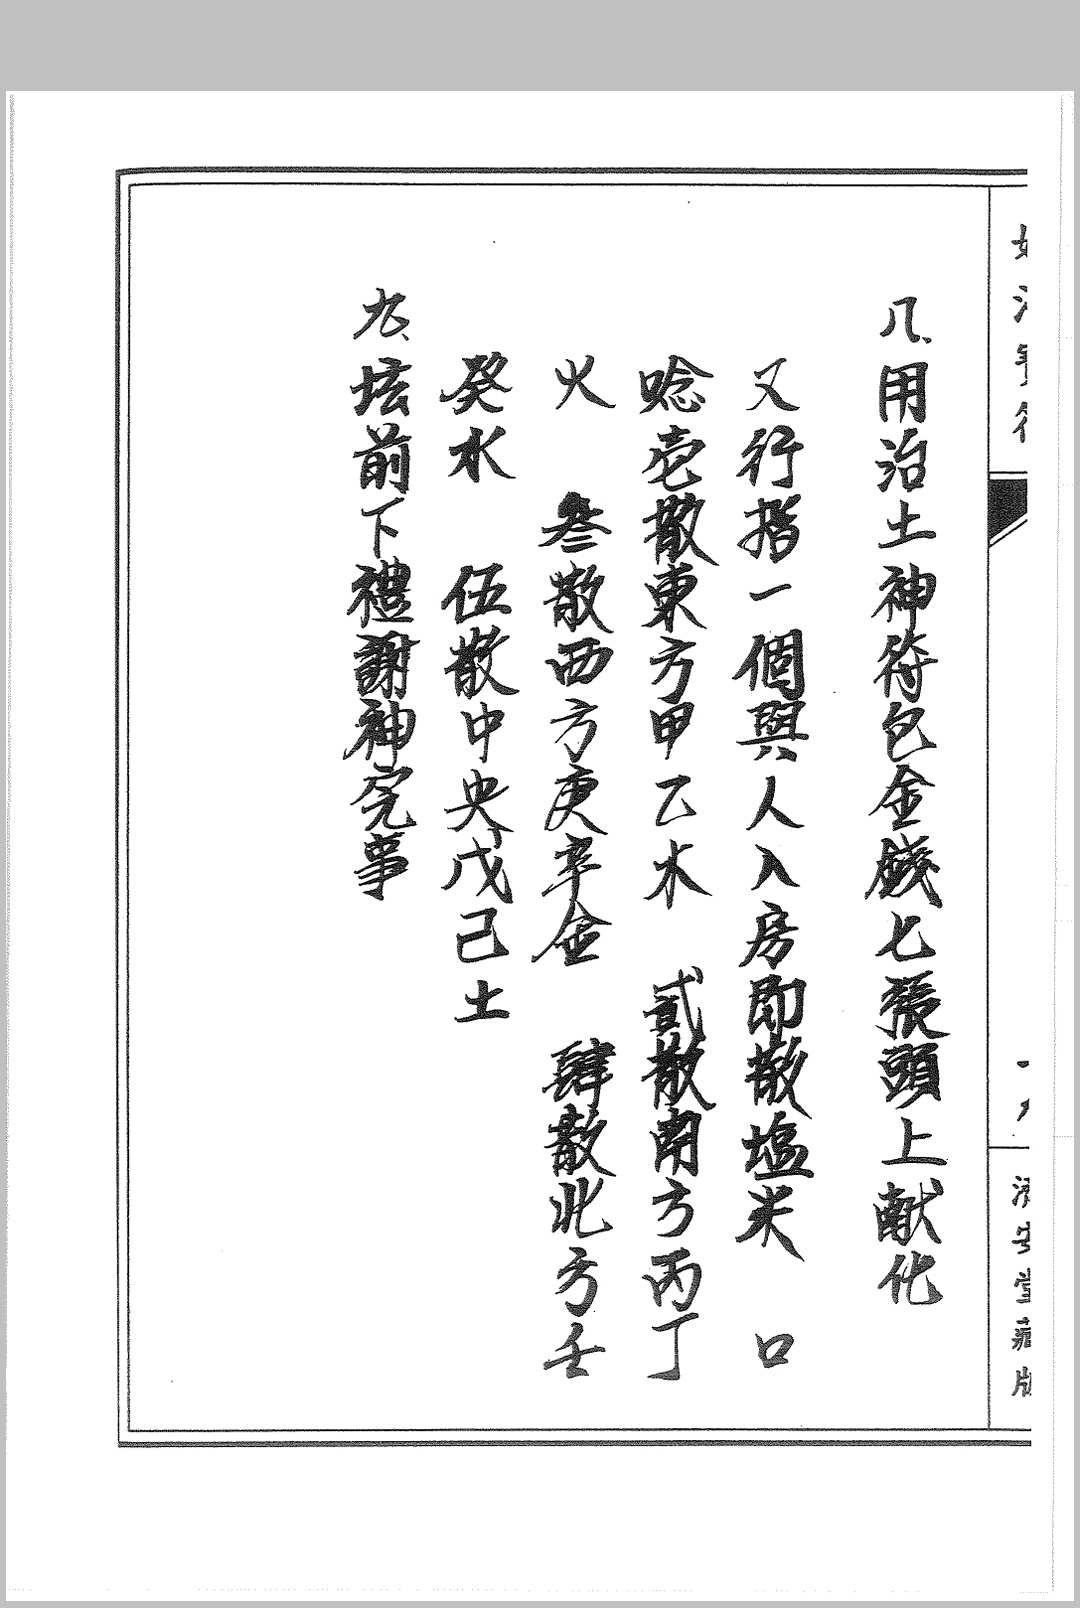 八、用治土神符包金錢七張頭上献化
又行指一個與人入房即散塩米 口
唸壱散東方甲乙木 貳散南方丙丁
火 叁散西方庚辛金 肆散北方壬
癸水 伍散中央戊己土
九、坛前下禮謝神完事